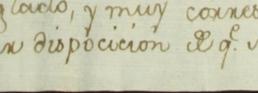 glado, y muy correc
n dispocicion de q.e